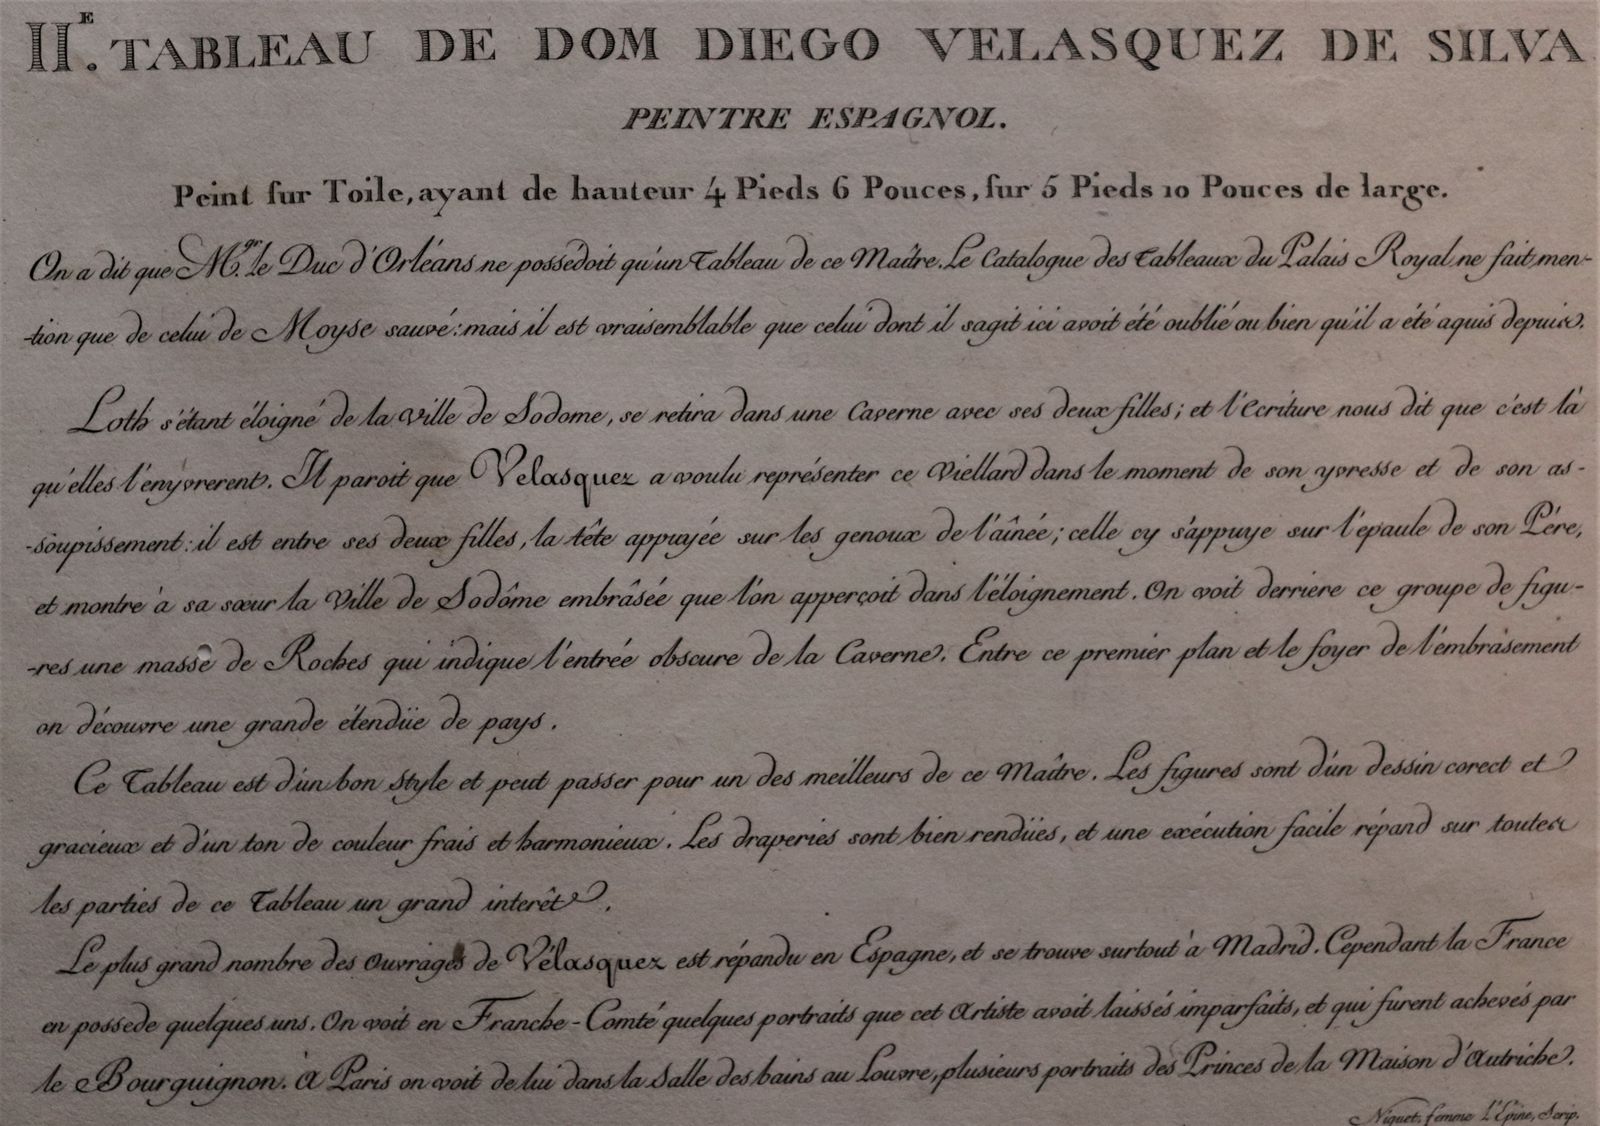 IIᴱ. TABLEAU DE DOM DIEGO VELASQUEZ DE SILVA
PEINTRE ESPAGNOL.
Peint sur Toile, ayant de hauteur 4 Pieds 6 Pouces, sur 5 Pieds 10 Pouces de large.
On a dit que M.gr le Duc d'Orléans ne possedoit qu'un Tableau de ce Maître. Le Catalogue des Tableaux du Palais Royal ne fait men-
-tion que de celui de Moyse sauvé: mais il est vraisemblable que celui dont il sagit ici avoit été oublié ou bien qu'il a été aquis depuis.
Loth s'étant éloigné de la Ville de Sodome, se retira dans une Caverne avec ses deux filles; et l'Ecriture nous dit que c'est là
qu'elles l'enyvrerent. Il paroit que Velasquez a voulu représenter ce Viellard dans le moment de son yvresse et de son as-
-soupissement: il est entre ses deux filles, la tête appuyée sur les genoux de l'aînée; celle cy s'appuye sur l'epaule de son Pére,
et montre à sa sœur la Ville de Sodôme embrâsée que l'on apperçoit dans l'éloignement. On voit derriere ce groupe de figu-
-res une masse de Roches qui indique l'entrée obscure de la Caverne. Entre ce premier plan et le foyer de l'embrâsement
on découvre une grande étendüe de pays.
Ce Tableau est d'un bon Style et peut passer pour un des meilleurs de ce Maître. Les figures sont d'un dessin corect et
gracieux et d'un ton de couleur frais et harmonieux. Les draperies sont bien rendües, et une exécution facile répand sur toutes
les parties de ce Tableau un grand interêt.
Le plus grand nombre des Ouvrages de Vélasquez est répandu en Espagne, et se trouve surtout à Madrid. Cependant la France
en possede quelques uns. On voit en Franche-Comté quelques portraits que cet Artiste avoit laissés imparfaits, et qui furent achevés par
le Bourguignon. A Paris on voit de lui dans la Salle des bains au Louvre, plusieurs portraits des Princes de la Maison d'Autriche.
Niquet, femme L'Epine, Scrip.